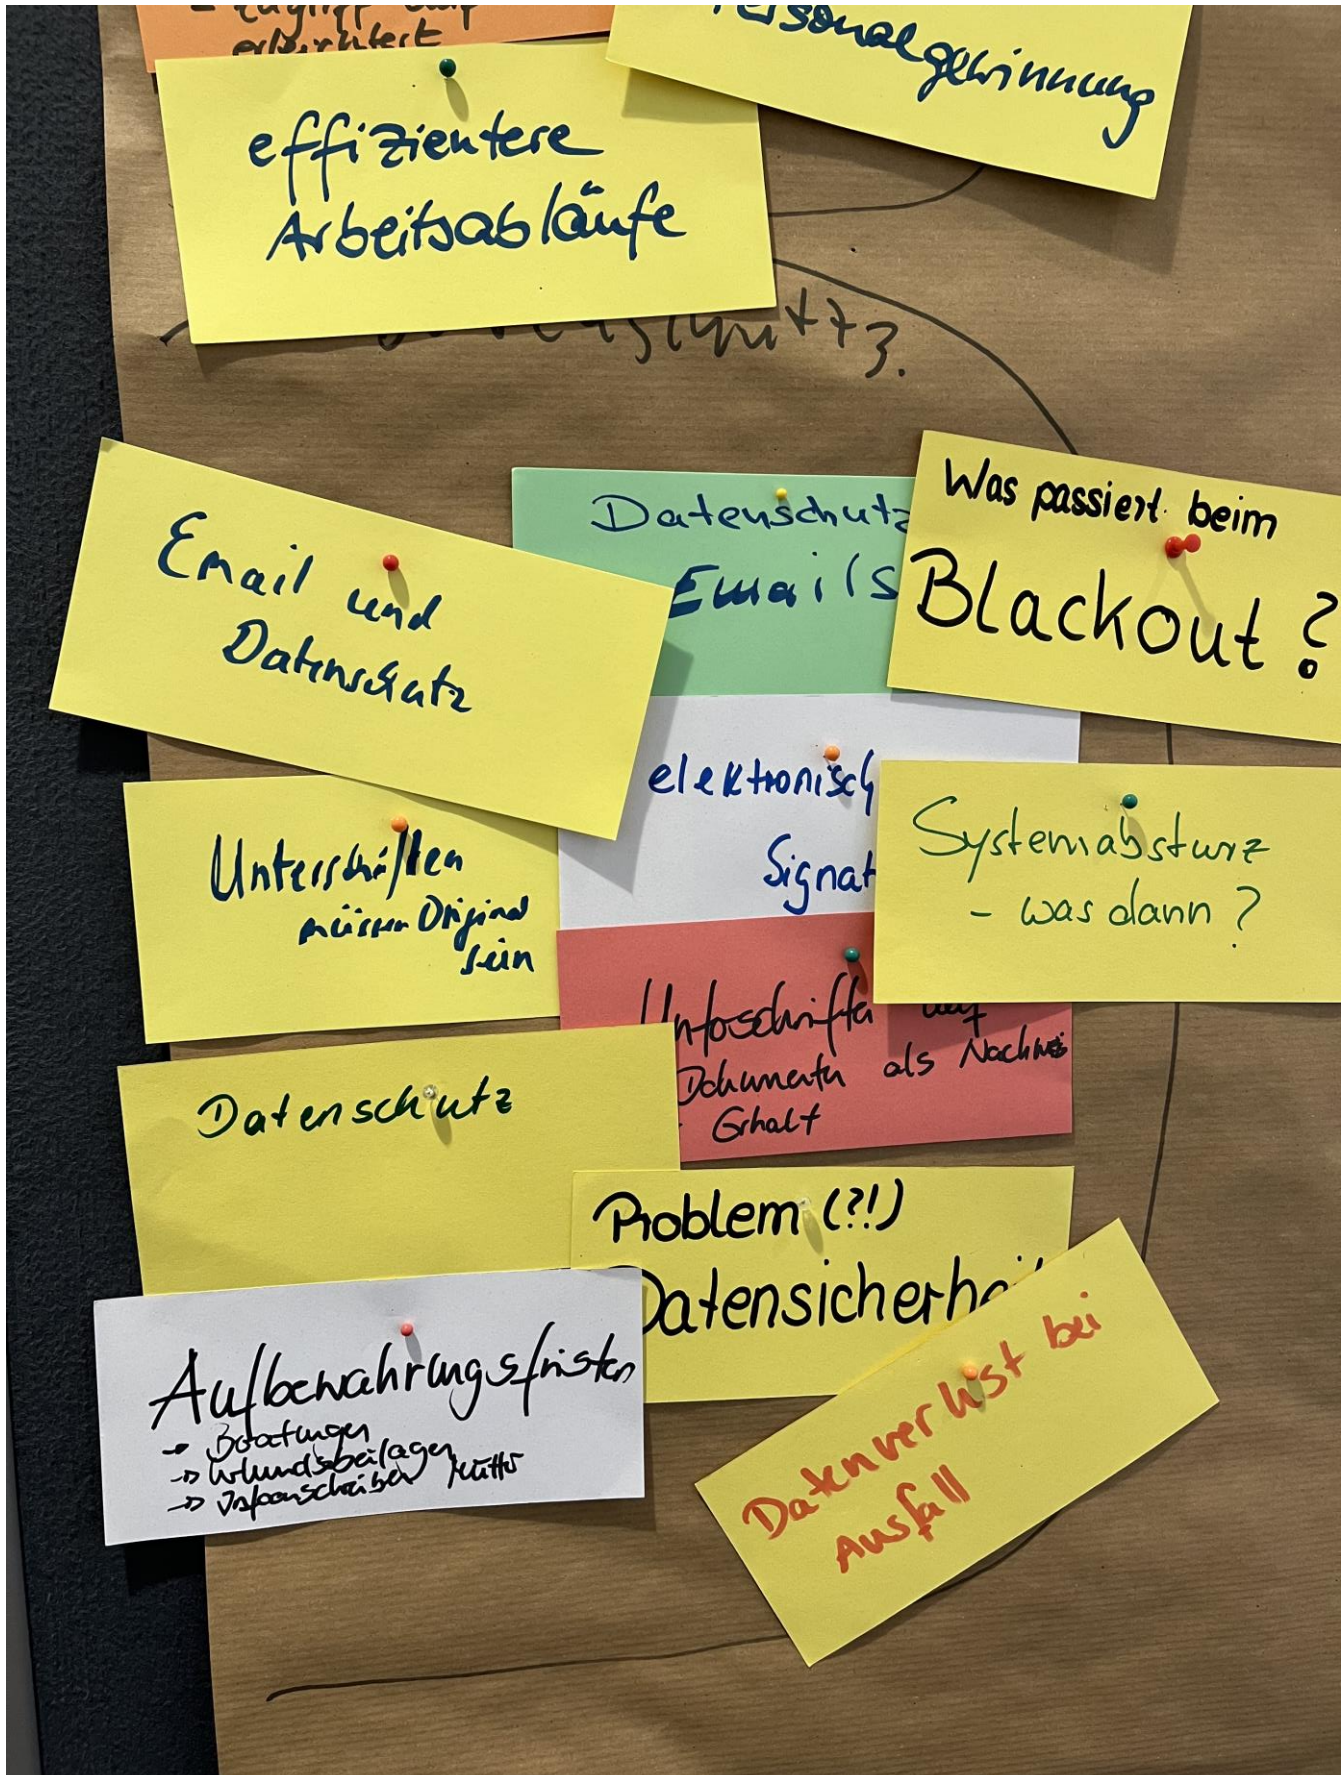 erleichtert
Personalgewinnung
effizientere
Arbeitsabläufe
Email und
Datenschutz
Datenschutz
Emails
Was passiert beim
Blackout?
elektronisch
Signat
Systemabsturz
- was dann?
Unterschriften
müssen Original
sein
Unterschriften auf
Dokumenten als Nachweis
Erhalt
Datenschutz
Problem (?!)
Datensicherhei
Aufbewahrungsfristen
→ Beratungen
Datenverlust bei
Ausfall